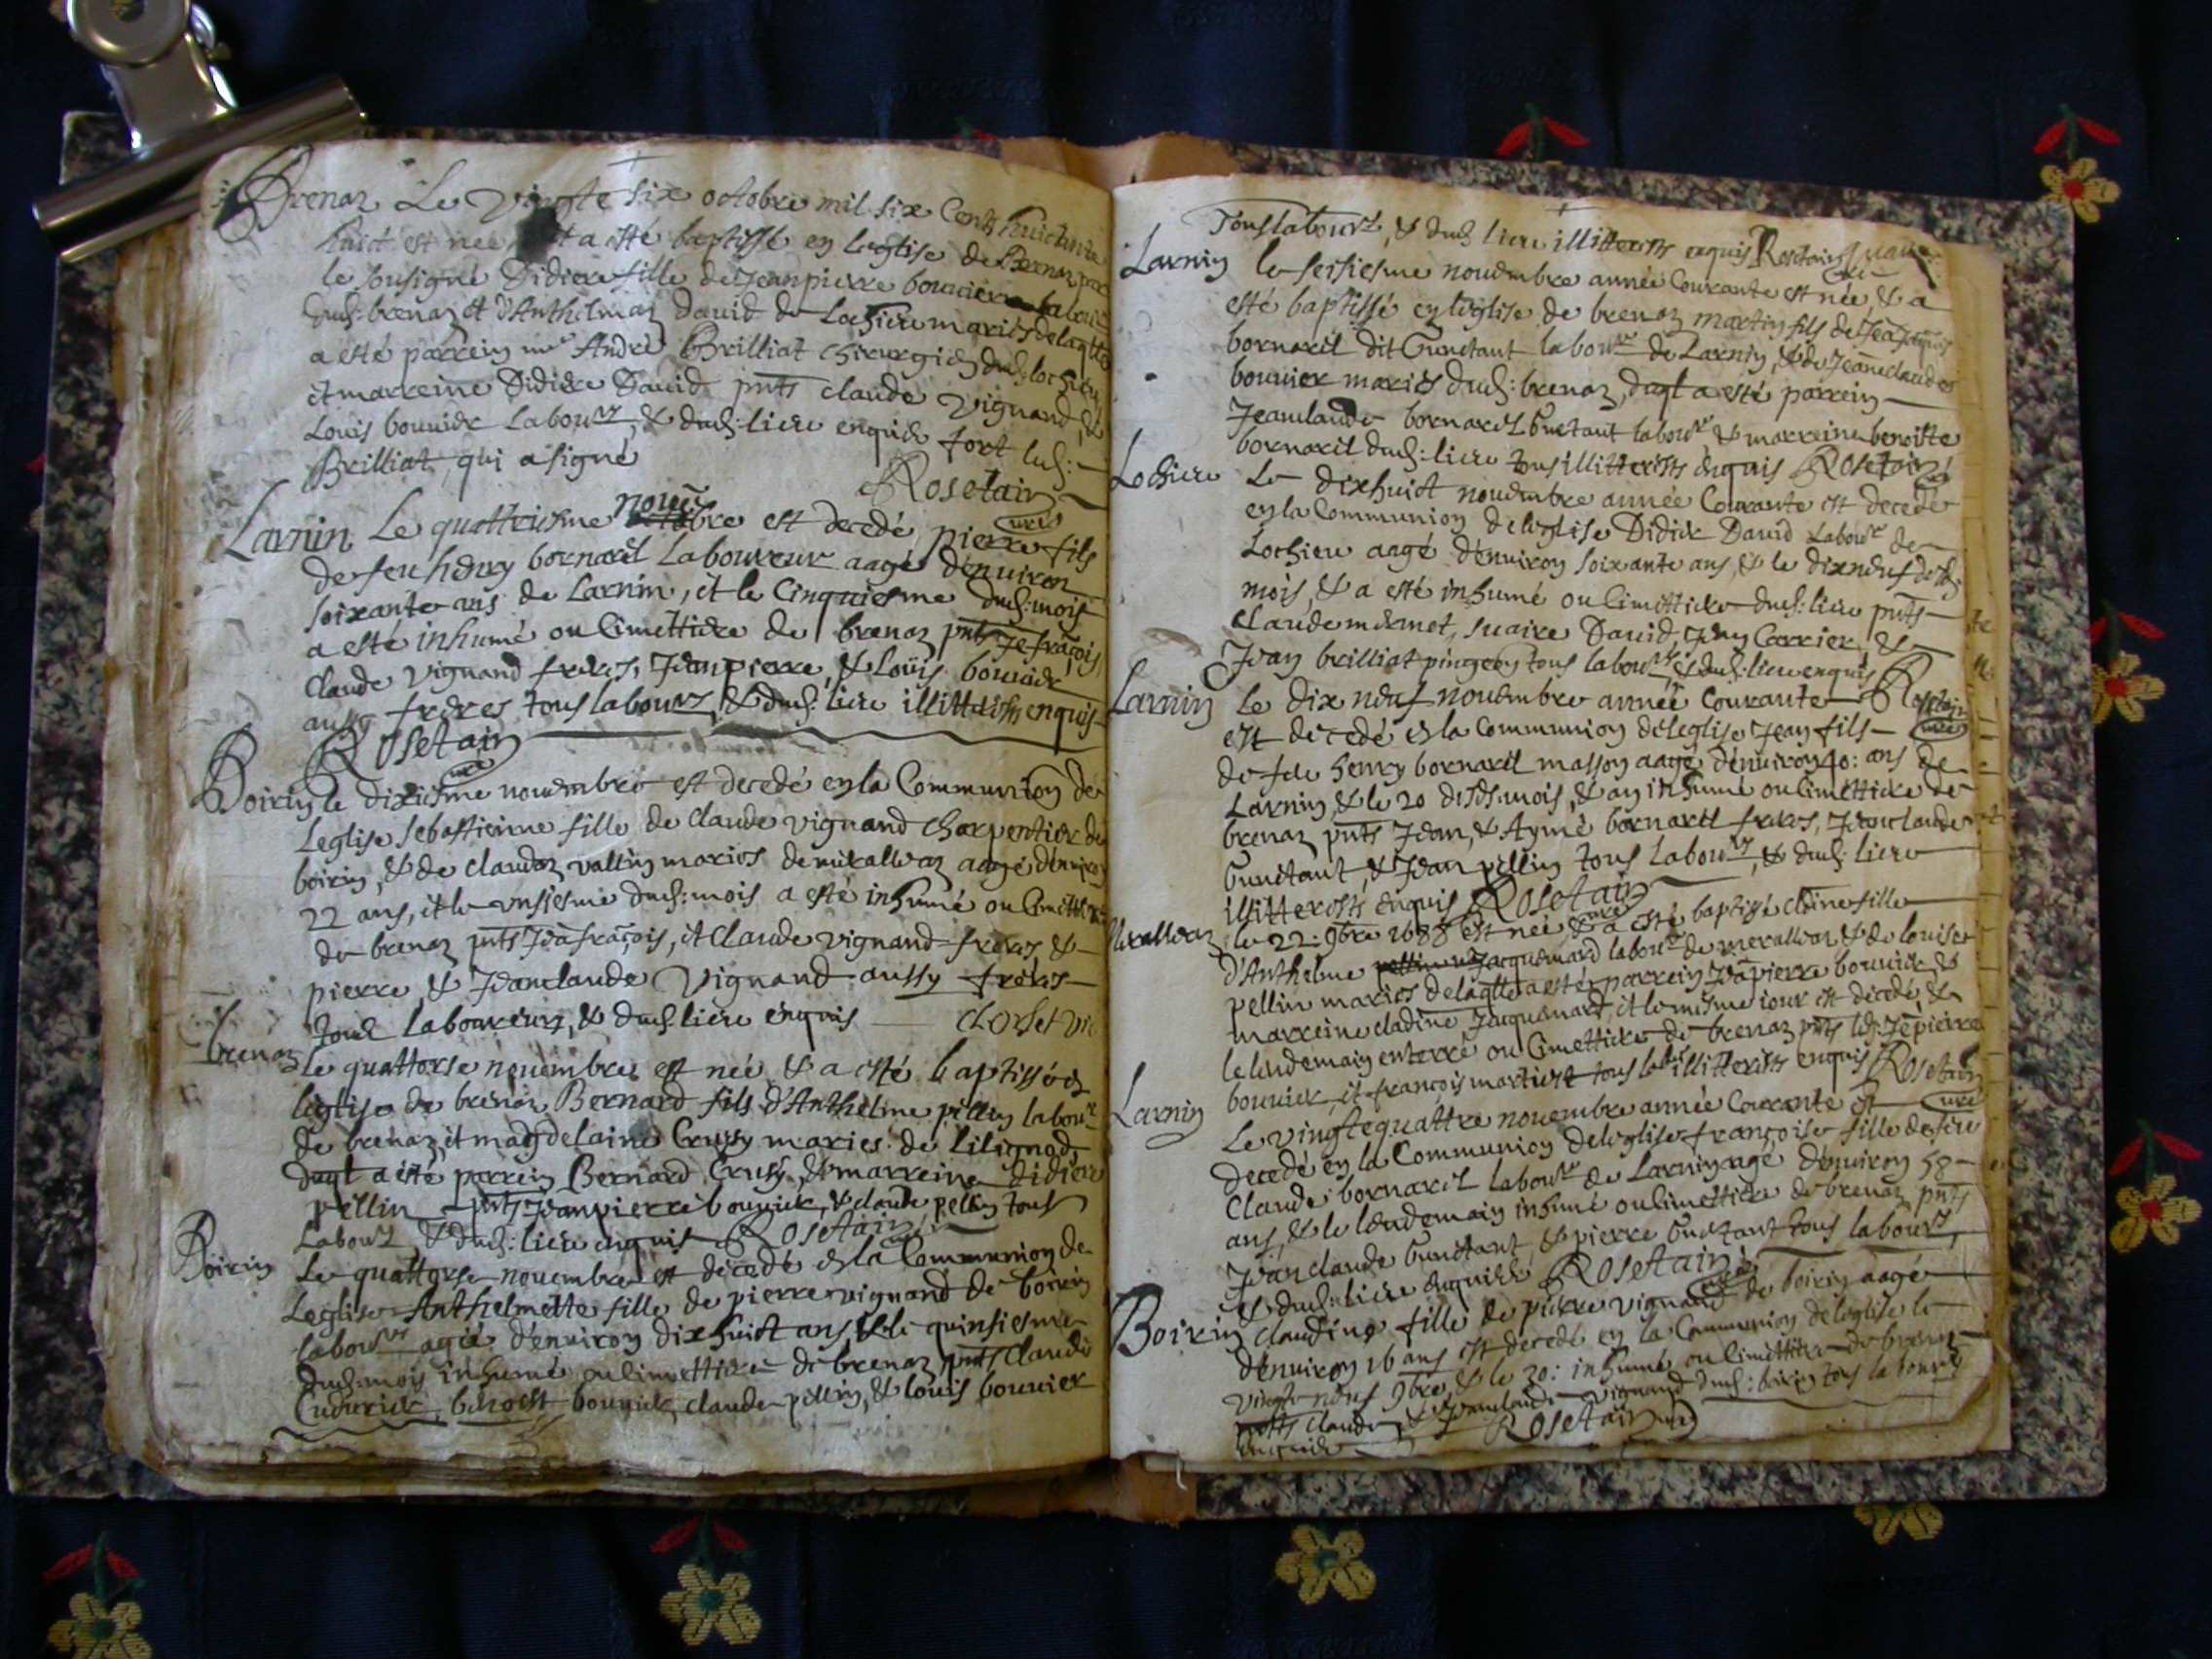 Brenaz Le Vingte six octobre mil six Cents huictante
huict est née et a esté baptissé en leglise de Brenaz par
le sousigné Didiere fille de Jeanpierre bouvier labour
dud: brenaz et d'Anthelmaz David de Lochieu mariés de laqlle
a esté parrein me André Brilliat chirurgien dud: lochieu
et marreine Didiere David pnts claude vignand, &
Louis bouvier Labours, & dud: lieu enquis fort led:
Brilliat qui a signé
Rosetain curé
Larnin Le quattriesme nouebre est decedé pierre fils
de feu henry bornarel Laboureur aagé d'enuiron
soixante ans de Larnin, et le Cinquiesme dud: mois
a esté inhumé ou Cimettiere de brenaz pnts Jefraçois,
Claude vignand freres, Jeanpierre, & Loüis bouuier
aussy freres tous labours, & dud: lieu illitterés enquis
Rosetain curé
Boirin le dixiesme nouembre est decedé en la Communion de
Leglise sebastienne fille de claude vignand charpentier de
boirin, & de claudaz vallin mariés de mérallvaz aagé d'enuiron
22 ans, et le vnsiesme dud: mois a esté inhumé ou Cimettiere
de brenaz pnts Jeafraçois, et Claude vignand freres &
pierre & Jeanclaude Vignand aussy freres
tous laboureurs, & dud: lieu enquis Closet vic
brenaz Le quattorse nouembre est née & a esté baptissé en
leglise de brenaz Bernard fils d'Anthelme pellin labour
de brenaz et magdelaine Crussy mariés de lilignod,
duql a esté parrein Bernard Crussy & marreine didiere
pellin pnts Jeanpierre bouuier, & claude pellin tous
Labours & dud: lieu enquis Rosetain
Boirin Le quattorse nouembre est decedé en la Communion de
Leglise Anthelmette fille de pierre vignand de boirin
labour agée d'enuiron dixhuict ans, & le quinsiesme
dud: mois inhumé ou Cimettiere de brenaz pnts claude
Cudurier, benoist bouuier, claude pellin, & louis bouuier
Tous labours, & dud: lieu illitterés enquis Rosetain curé
Larnin le seisiesme nouembre année Courante est née, & a
esté baptissé en leglise de brenaz martin fils de Jeafraçois
bornarel dit Cunctant labour de Larnin, & de Jeanneclaude
bouuier mariés dud: brenaz, duql a esté parrein
Jeanclaude bornarel Cunctant labour & marreine benoiste
bornarel dud: lieu tous illitterés enquis Rosetain
Lochieu Le dixhuict nouembre année Courante est decedé
en la Communion de leglise Didier David Labour de
Lochieu aagé d'enuiron soixante ans, & le dixneuf desd:
mois, & a esté inhumé ou Cimettiere dud: lieu pnts
Claude mermet, suaire David, Jean Carrier, &
Jean brilliat pingeon tous labours & dud: lieu enquis
Larnin Le dix neuf nouembre année Courante Rosetain curé
est decedé en la Communion de leglise Jean fils
de feu henry bornarel masson aagé d'enuiron 40: ans de
Larnin, & le 20 desd: mois, & an inhumé ou Cimettiere de
brenaz pnts Jean, & Aymé bornarel freres, Jeanclaude
Cunctant, & Jean pellin tous Labours, & dud: lieu
illitterés enquis Rosetain curé
Merallvaz le 22: 9bre 1688 est née, & a esté baptizé cladine fille
d'Anthelme Jacquemard labour de merallvaz & de louise
pellin mariés de laqlle a esté parrein Jeapierre bouuier &
marreine cladine Jacquemard, et le mesme iour est decedé, &
le lendemain enterré ou Cimettiere de brenaz pnts led: Jepierre
bouuier, et françois martiest tous labrs illitterés enquis Rosetain curé
Larnin Le vingtequattre nouembre année Courante est
decedé en la Communion de leglise françoise fille de feu
Claude bornarel labour de Larnin, agé d'enuiron 58
ans, & le lendemain inhumé ou Cimettiere de brenaz pnts
Jeanclaude Cunctant, & pierre Cunctant tous labours,
& dud: lieu enquis Rosetain curé
Boirin claudine fille de pierre vignand de boirin aagé
d'enuiron 16 ans est decedé en la Communion de leglise le
vingte neuf 9bre, & le 30: inhumé ou Cimettiere de brenaz
pnts claude, & Jeanclaude vignand dud: boirin tous labours
enquis Rosetain curé